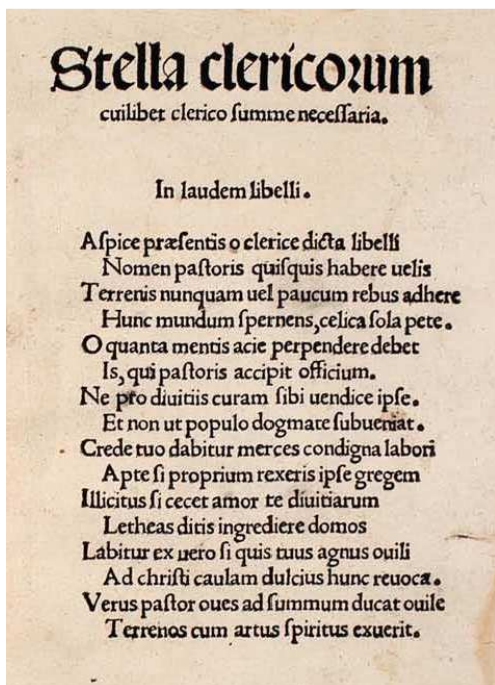 Stella clericorum
cuilibet clerico summe necessaria.
In laudem libelli.
Aspice præsentis o clerice dicta libelli
Nomen pastoris quisquis habere uelis
Terrenis nunquam uel paucum rebus adhere
Hunc mundum spernens, celica sola pete.
O quanta mentis acie perpendere debet
Is, qui pastoris accipit officium.
Ne pro diuitiis curam sibi uendice ipse.
Et non ut populo dogmate subueniat.
Crede tuo dabitur merces condigna labori
Apte si proprium rexeris ipse gregem
Illicitus si cecet amor te diuitiarum
Letheas ditis ingrediere domos
Labitur ex uero si quis tuus agnus ouili
Ad christi caulam dulcius hunc reuoca.
Verus pastor oues ad summum ducat ouile
Terrenos cum artus spiritus exuerit.